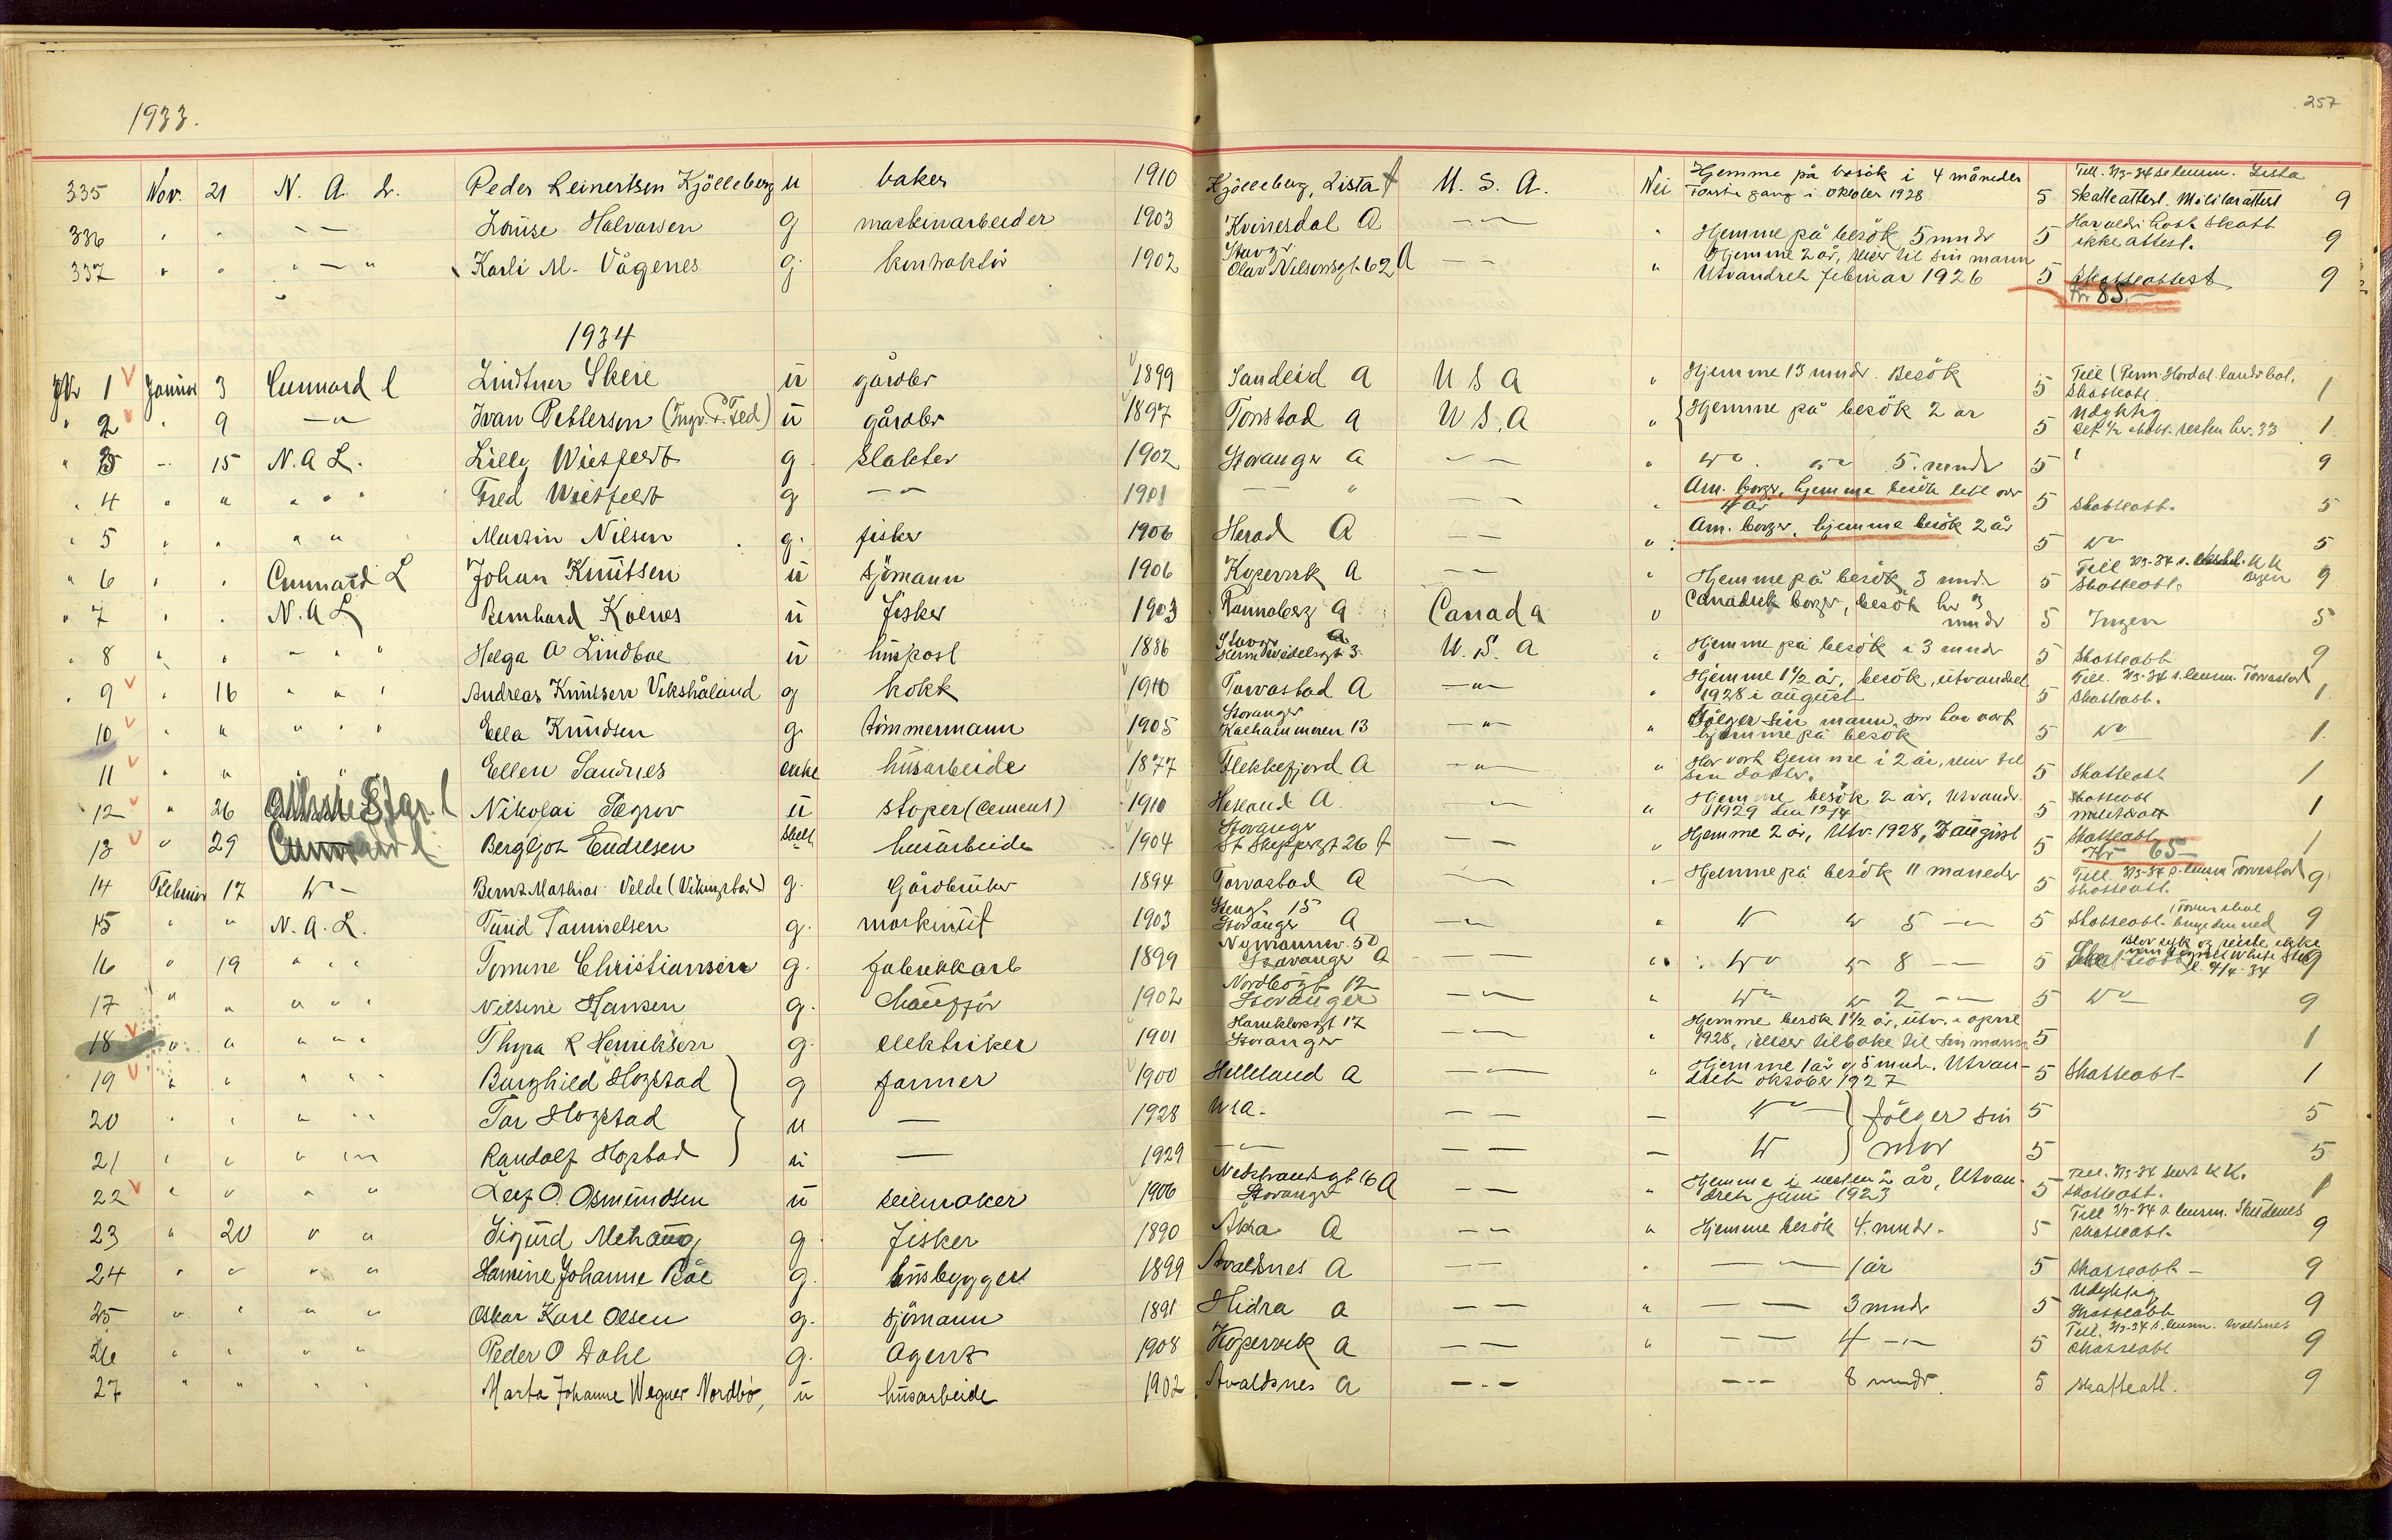 1933.
257
335 Nov. 21 N. A. L. Peder Reinertsen Kjölleberg u baker 1910 Kjölleberg, Lista f U. S. A. Nei Hjemme på besök i 4 måneder Förste gang i Oktober 1928 5 Skatteattest. Militærattest 9
336 " " — Louise Halvorsen g maskinarbeider 1903 Kvinesdal A — " — " Hjemme på besök 5 mndr 5 Har aldri hatt skatt ikke attest. 9
337 " " " — " Karli M. Vågenes g. kontraktör 1902 Stavgr. Olav Nilsensgt. 62 A — — " Hjemme 2 år, reiser til sin mann Utvandret februar 1926 5 Skatteattest Kr 85.— 9
1934
Nr 1 Januar 3 Cunnard l Lindtner Skeie u gårdbr 1899 Sandeid A U S A " Hjemme 13 mndr. Besök 5 Skatteatt. 1
" 2 " 9 — " Ivan Pettersen u gårdbr 1897 Tonstad A U S. A " Hjemme på besök 2 år 5 Udyktig 1
" 3 — 15 N. A L. Lilly Wiestfeldt g slakter 1902 Stavanger A — " — " Do. Do 5. mndr 5 9
" 4 " " " " " Fred Wiestfeldt g — " — 1901 — " — — " Am. borger, hjemme besök 5 Skatteatt. 5
" 5 " " " " Martin Nilsen g. fisker 1906 Herad A — — " Am. borger, hjemme besök 2 år 5 Do 5
" 6 " " Cunnard L Johan Knutsen u sjömann 1906 Kopervik A — — " Hjemme på besök 3 mndr 5 Skatteatt. 9
" 7 " " N. A L Bernhard Kalnes u fisker 1903 Rannaberg A Canada " Canadisk borger, besök her 3 mndr 5 Ingen 5
" 8 " " " " " Helga A Lindboe u huspost 1886 Stavgr A U. S. A " Hjemme på besök i 3 mndr 5 Skatteatt 9
" 9 " 16 " " " Andreas Knutsen Vikshåland g kokk 1910 Torvastad A — " — " Hjemme 1 1/2 år, besök, utvandret 1928 i august 5 Till. 3/3-34 s. lensm. Torvastad Skatteatt. 1
10 " " " " " Ella Knudsen g. tömmermann 1905 Stavanger Kalhammeren 13 — " — " Fölger sin mann, som har vært hjemme på besök 5 Do 1.
11 " " " " Ellen Sandnes enke husarbeide 1877 Flekkefjord A — " — " Har vært hjemme i 2 år, reiser til sin datter. 5 Skatteatt 1
" 12 " 26 Nikolai Sægrov u stöper (Cement) 1910 Hetland A. — " — " Hjemme, besök 2 år, Utvandr. 1929 den 12/4 5 Skatteatt 1
13 " 29 Cunnard l Bergljot Endresen skilt husarbeide 1904 Stavanger St. Skippergt 26 f — — " Hjemme 2 år, Utv. 1928, 3 august 5 Skatteatt Kr 65— 1
14 Februar 17 Do — Bernt Mathias Velde (Vikingstad) g. Gårdbruker 1894 Torvastad A — — " Hjemme på besök 11 måneder 5 Till. 3/3-34 s. lensm Torvastad Skatteatt. 9
15 " " N. A. L. g. maskinist 1903 Stengt. 15 Stavanger A — " — " Do Do 5 — " — 5 Skatteatt. 9
16 " 19 " " " Tomine Christiansen g. fabrikkarb 1899 Nymannsv. 50 Stavanger A — " — " Do Do 8 — — 5 Blev syk og reiste ikke 4/4-34 9
17 " " " " " Nilsine Hansen g. Chaufför 1902 Nordbögt 12 Stavanger — " — " Do Do 2 — " — 5 Do 9
18 " " " " " Thyra R Henriksen g. elektriker 1901 Stavanger — " — " Hjemme besök 1 1/2 år, utv. i april 1928, reiser tilbake til sin mann 5 1
19 " " " " " Borghild Hogstad g farmer 1900 Helleland A — " — " Hjemme 1 år og 5 mndr. Utvandret oktober 1927 5 Skatteatt 1
20 " " " " " Tor Hogstad u — 1928 Usa. — — — Do fölger sin 5 5
21 " " " " " Randolf Hogstad u — 1929 — " — — — — Do mor 5 5
22 " " " " Leif O. Osmundsen u seilmaker 1906 Nedstrandsgt 16 A Stavanger — — " Hjemme i nesten 2 år, Utvandret juni 1923 5 Skatteatt. 1
23 " 20 " " Sigurd Mehaug g. fisker 1890 Åkra A — — " Hjemme besök 4. mndr. 5 Till 3/3-34 s. lensm. Skudenes Skatteatt. 9
24 " " " " Hansine Johanne Böe g. husbygger 1899 Avaldsnes A — — " — " — 1 år 5 Skatteatt — 9
25 " " " " Oskar Karl Olsen g. sjömann 1891 Hidra A — — " — — 3 mndr 5 Udyktig Skatteatt 9
26 " " " " Peder O Dahl g. Agent 1908 Kopervik A — — " — — 4 — " — 5 Skatteatt 9
27 " " " " Marta Johanne Wegner Nordbö, u husarbeide 1902 Avaldsnes A — " — — " — 8 mndr. 5 Skatteatt. 9